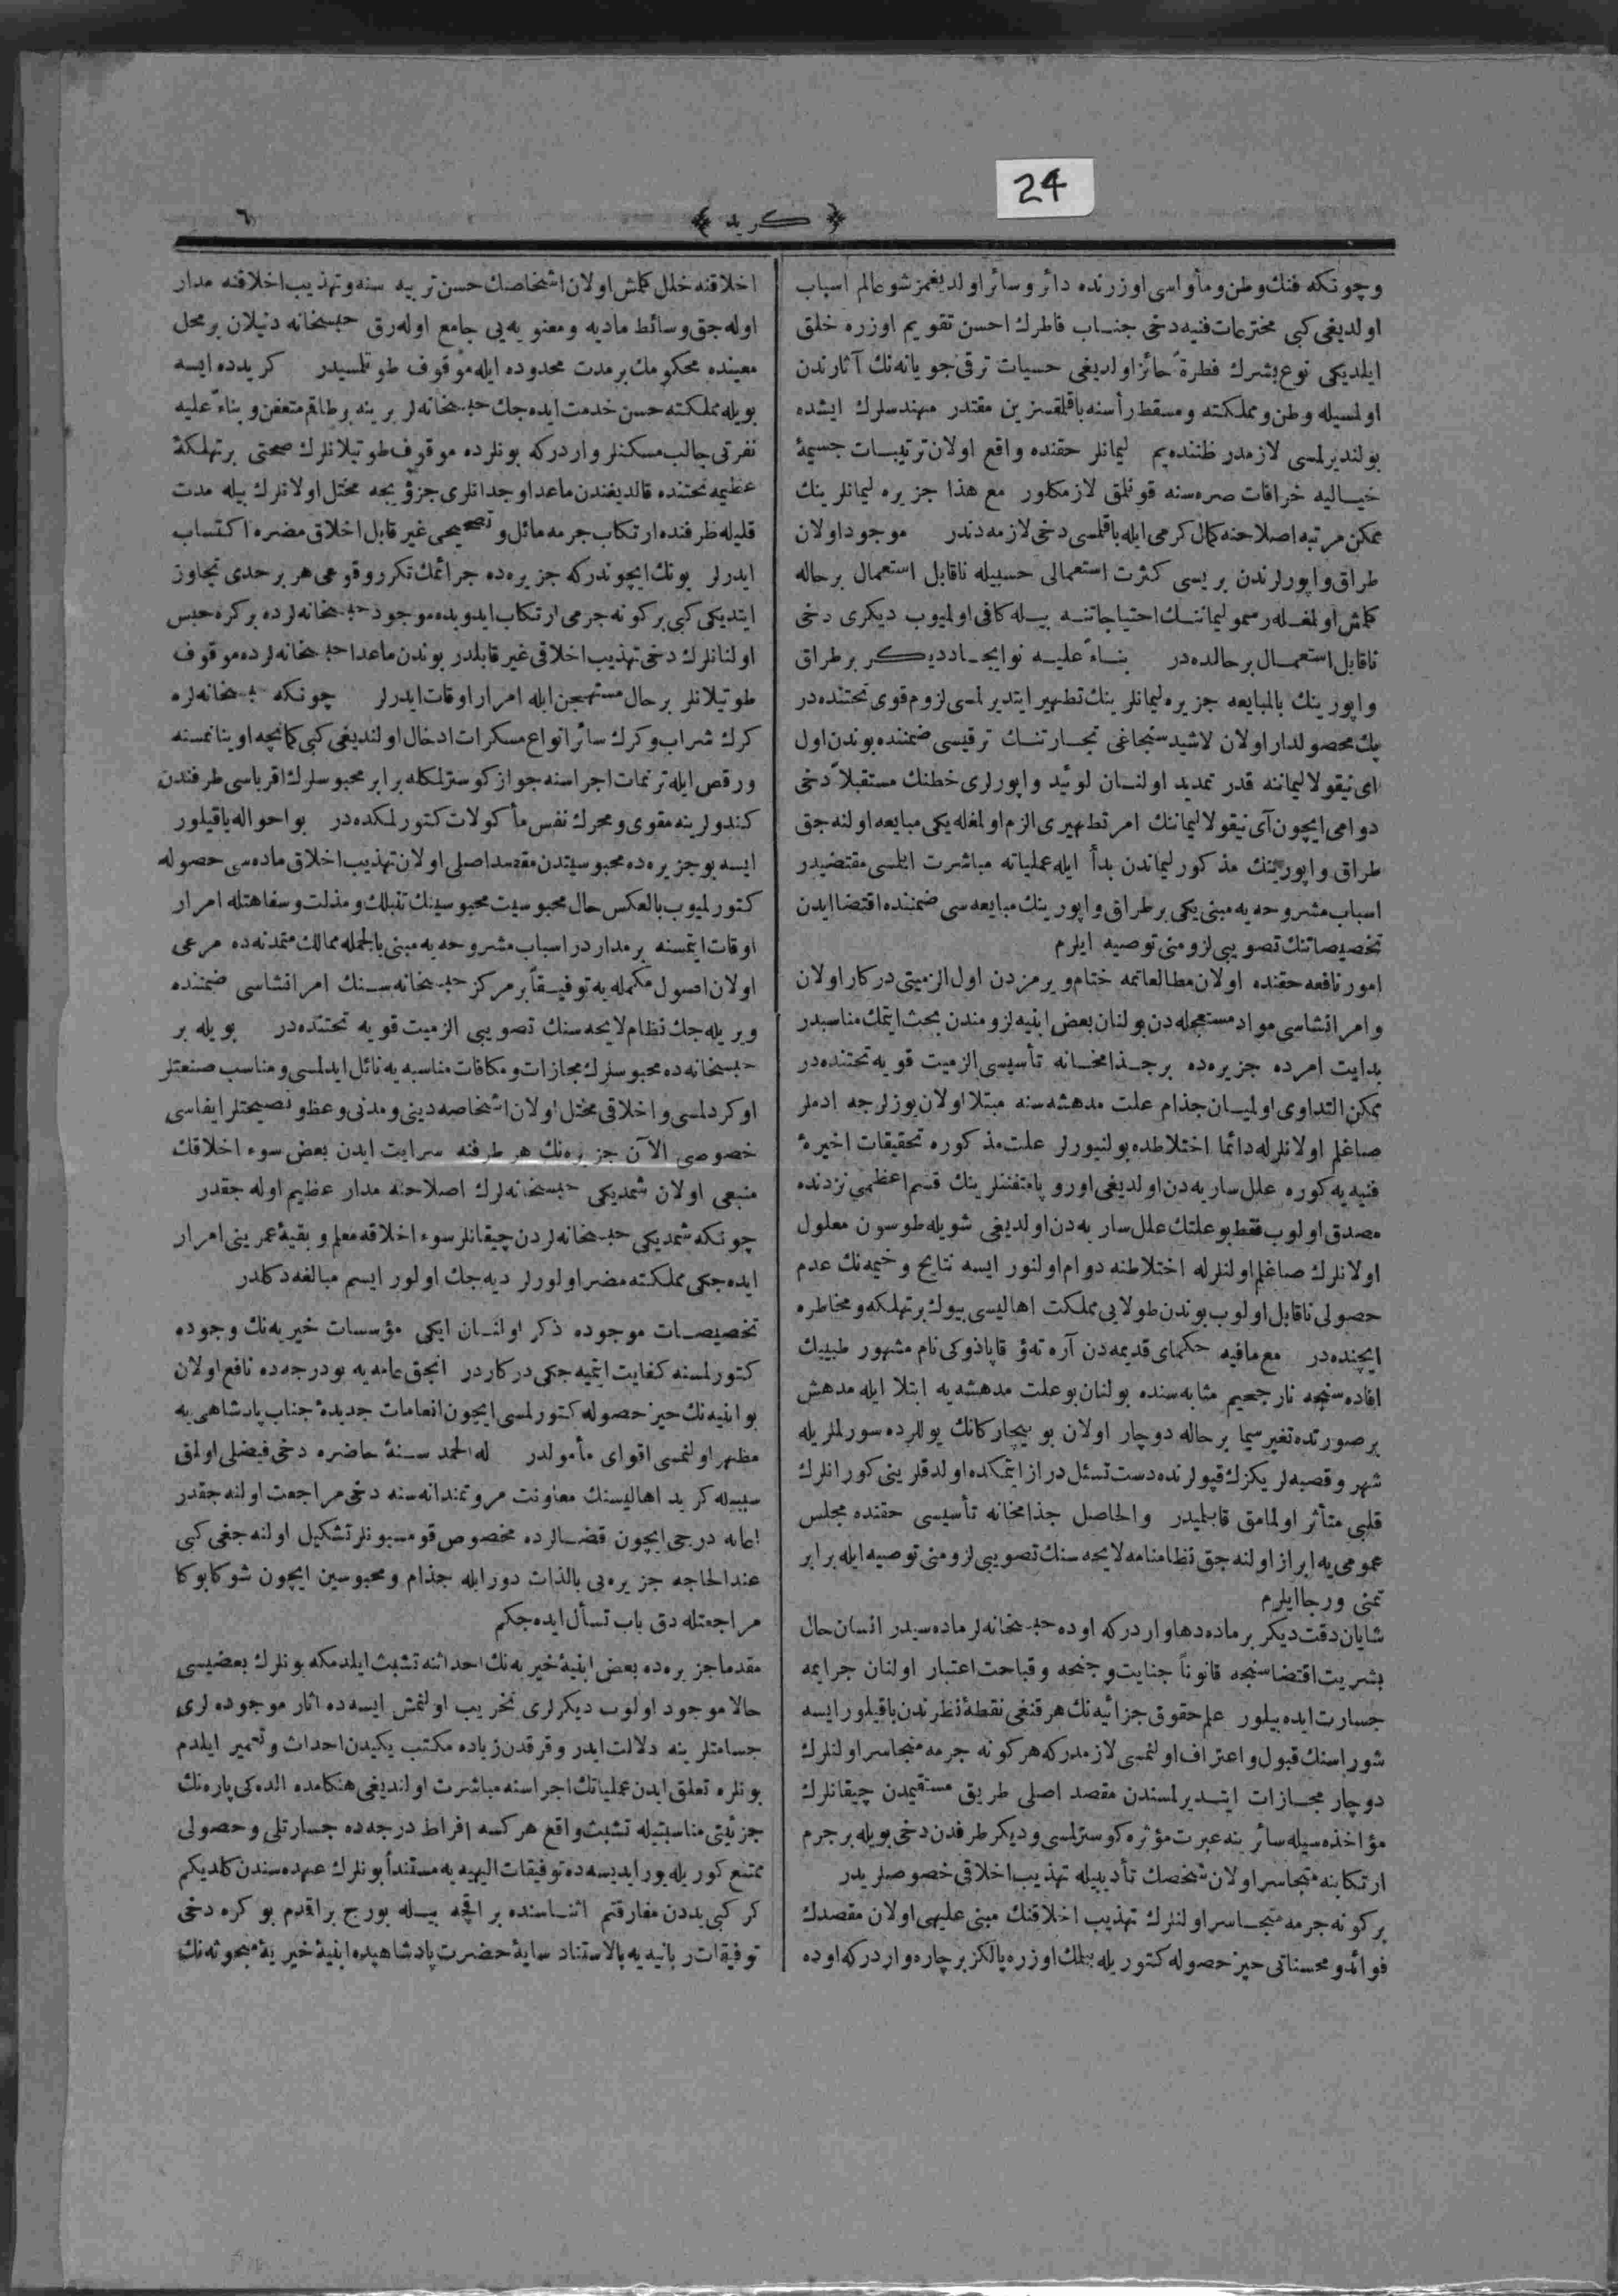 24
﴿ كريد ﴾
٦
وچونكه فنك وطن ومأواسى اوزرنده دائر وسائر اولديغمز شو عالم اسباب
اولديغى كبى مخترعات فنيه دخى جنــاب فاطرك احسن تقويم اوزره خلق
ايلديكى نوع بشرك فطرةً حائز اولديغى حسيات ترقى جويانه نك آثارندن
اولمسيله وطن ومملكته ومسقط رأسنه باقلقسزين مقتدر مهندسلرك ايشده
بولنديرلمسى لازمدر ظننده يم ليمانلر حقنده واقع اولان ترتيبــات جسيمهٔ
خيــاليه خرافات صره سنه قونلق لازمكلور مع هذا جزيره ليمانلرينك
ممكن مرتبه اصلاحنه كمال كرمى ايله باقلمسى دخى لازمه دندر موجود اولان
طراق واپورلرندن بريسى كثرت استعمالى حسبيله ناقابل استعمال برحاله
كلمش اولمغــله رسمو ليماننــك احتياجاتنــه بيــله كافى اولميوب ديكرى دخى
ناقابل استعمــال برحالده در بنــاءً عليــه نو ايجــاد ديــكر بر طراق
واپورينك بالمبايعه جزيره ليمانلرينك تطهير ايتديرلمسى لزوم قوى تحتنده در
پك محصولدار اولان لاشيد سنجاغى تجــارتنــك ترقيسى ضمننده بوندن اول
اى نيقولا ليماننه قدر تمديد اولنــان لوئيد واپورلرى خطنك مستقبلاً دخى
دوامى ايچون آى نيقولا ليماننك امر تطهيرى الزم اولمغله يكى مبايعه اولنه جق
طراق واپورينك مذكور ليماندن بدأ ايله عملياته مباشرت ايلمسى مقتضيدر
اسباب مشروحه يه مبنى يكى بر طراق واپورينك مبايعه سى ضمننده اقتضا ايدن
تخصيصاتنك تصويبى لزومنى توصيه ايلرم
امور نافعه حقنده اولان مطالعاتمه ختام ويرمزدن اول الزميتى دركار اولان
وامر انشاسى مواد مستعجله دن بولنان بعض ابنيه لزومندن بحث ايتمك مناسبدر
بدايت امرده جزيره ده برجــذامخــانه تأسيسى الزميت قويه تحتنده در
ممكن التداوى اولميــان جذام علت مدهشه سنه مبتلا اولان يوزلرجه ادملر
صاغلم اولانلرله دائما اختلاطده بولنيورلر علت مذكوره تحقيقات اخيرهٔ
فنيه يه كوره علل ساريه دن اولديغى اوروپا متفننلرينك قسم اعظمى نزدنده
مصدق اولوب فقط بو علتك علل ساريه دن اولديغى شويله طوسون معلول
اولانلرك صاغلم اولنلرله اختلاطنه دوام اولنور ايسه نتايج وخيمه نك عدم
حصولى ناقابل اولوب بوندن طولايى مملكت اهاليسى بيوك برتهلكه ومخاطره
ايچنده در مع مافيه حكماى قديمه دن آره ته ؤ قاپاذوكى نام مشهور طبيبك
افاده سنجه نار جحيم مثابه سنده بولنان بو علت مدهشه يه ابتلا ايله مدهش
برصورتده تغير سيما برحاله دوچار اولان بو بيچاركانك يوللرده سورلنلريله
شهر وقصبه لر يكزك قپولرنده دست تسئل دراز ايتمكده اولدقلرينى كورانلرك
قلبى متأثر اولمامق قابلميدر والحاصل جذامخانه تأسيسى حقنده مجلس
عمومى يه ابراز اولنه جق نظامنامه لايحه سنك تصويبى لزومنى توصيه ايله برابر
تمنى ورجا ايلرم
شايان دقت ديكر بر ماده دها واردركه اوده حبسخانه لر ماده سيدر انسان حال
بشريت اقتضا سنجه قانوناً جنايت وجنحه وقباحت اعتبار اولنان جرايمه
جسارت ايده بيلور علم حقوق جزائيه نك هرقنغى نقطهٔ نظرندن باقيلور ايسه
شوراسنك قبول واعتراف اولنمسى لازمدركه هر كونه جرمه متجاسر اولنلرك
دوچار مجــازات ايتــديرلمسندن مقصد اصلى طريق مستقيمدن چيقانلرك
مؤاخذه سيله سائرينه عبرت مؤثره كوسترلمسى وديكر طرفدن دخى بويله برجرم
ارتكابنه متجاسر اولان شخصك تأديبيله تهذيب اخلاقى خصوصلريدر
بركونه جرمه متجــاسر اولنلرك تهذيب اخلاقنك مبنى عليهى اولان مقصدك
فوائد ومحسناتى حيز حصوله كتوريله بيلمك اوزره يالكز برچاره واردركه اوده
اخلاقنه خلل كلمش اولان اشخاصك حسن تربيه سنه وتهذيب اخلاقنه مدار
اوله جق وسائط ماديه ومعنويه يى جامع اوله رق حبسخانه دنيلان برمحل
معينده محكومك برمدت محدوده ايله موقوف طوتلمسيدر كريدده ايسه
بويله مملكته حسن خدمت ايده جك حبسخانه لر يرينه برطاقم متعفن وبناءً عليه
نفرتى جالب مسكنلر واردركه بونلرده موقوف طوتيلانلرك صحتى برتهلكهٔ
عظيمه تحتنده قالديغندن ماعدا وجدانلرى جزؤيجه مختل اولانلرك بيله مدت
قليله ظرفنده ارتكاب جرمه مائل وتصحيحى غير قابل اخلاق مضره اكتساب
ايدرلر بونك ايچوندركه جزيره ده جرائمك تكرر وقوعى هر برحدى تجاوز
ايتديكى كبى بركونه جرمى ارتكاب ايدوبده موجود حبسخانه لرده بركره حبس
اولنانلرك دخى تهذيب اخلاقى غير قابلدر بوندن ماعدا حبسخانه لرده موقوف
طوتيلانلر برحال مستهجن ايله امرار اوقات ايدرلر چونكه حبسخانه لره
كرك شراب وكرك سائر انواع مسكرات ادخال اولنديغى كبى كمانچه اوينانمسنه
ورقص ايله ترنمات اجراسنه جواز كوسترلمكله برابر محبوسلرك اقرباسى طرفندن
كندولرينه مقوى ومحرك نفس مأكولات كتورلمكده در بو احواله باقيلور
ايسه بو جزيره ده محبوسيتدن مقصد اصلى اولان تهذيب اخلاق ماده سى حصوله
كتورلميوب بالعكس حال محبوسيت محبوسينك تنبلك ومذلت وسفاهتله امرار
اوقات ايتمسنه برمداردر اسباب مشروحه يه مبنى بالجمله ممالك متمدنه ده مرعى
اولان اصول مكمله يه توفيــقاً برمركز حبسخانه ســنك امر انشاسى ضمننده
ويريله جك نظام لايحه سنك تصويبى الزميت قويه تحتنده در بويله بر
حبسخانه ده محبوسلرك مجازات ومكافات مناسبه يه نائل ايدلمسى ومناسب صنعتلر
اوكردلمسى واخلاقى مختل اولان اشخاصه دينى ومدنى وعظ ونصيحتلر ايفاسى
خصوصى الآن جزيره نك هر طرفنه سرايت ايدن بعض سوء اخلاقك
منبعى اولان شمديكى حبسخانه لرك اصلاحنه مدار عظيم اوله جقدر
چونكه شمديكى حبسخانه لردن چيقانلر سوء اخلاقه معلم وبقيهٔ عمرينى امرار
ايده جكى مملكته مضر اولورلر ديه جك اولور ايسم مبالغه دكلدر
تخصيصــات موجوده ذكر اولنــان ايكى مؤسسات خيريه نك وجوده
كتورلمسنه كفايت ايتميه جكى دركاردر انجق عامه يه بو درجه ده نافع اولان
بو ابنيه نك حيز حصوله كتورلمسى ايچون انعامات جديدهٔ جناب پادشاهى يه
مظهر اولنمسى اقواى مأمولدر لله الحمد ســنهٔ حاضره دخى فيضلى اولمق
سببيله كريد اهاليسنك معاونت مروتمندانه سنه دخى مراجعت اولنه جقدر
اعانه درجى ايچون قضــالرده مخصوص قومسيونلر تشكيل اولنه جغى كبى
عندالحاجه جزيره يى بالذات دور ايله جذام ومحبوسين ايچون شوكا بوكا
مراجعتله دق باب تسأل ايده جكم
مقدما جزيره ده بعض ابنيهٔ خيريه نك احداثنه تشبث ايلدمكه بونلرك بعضيسى
حالا موجود اولوب ديكرلرى تخريب اولنمش ايسه ده اثار موجوده لرى
جسامتلرينه دلالت ايدر وقرقدن زياده مكتب يكيدن احداث وتعمير ايلدم
بونلره تعلق ايدن عملياتك اجراسنه مباشرت اولنديغى هنكامده الده كى پاره نك
جزئيتى مناسبتيله تشبث واقع هركسه افراط درجه ده جسارتلى وحصولى
ممتنع كوريليور ايديسه ده توفيقات الهيه يه مستنداً بونلرك عهده سندن كلديكم
كر كبى بلدن مفارقتم اثنــاسنده براقچه بيــله بورج براقدم بو كره دخى
توفيقات ربانيه يه بالاستناد سايهٔ حضرت پادشاهيده ابنيهٔ خيريهٔ مبحوثه نك